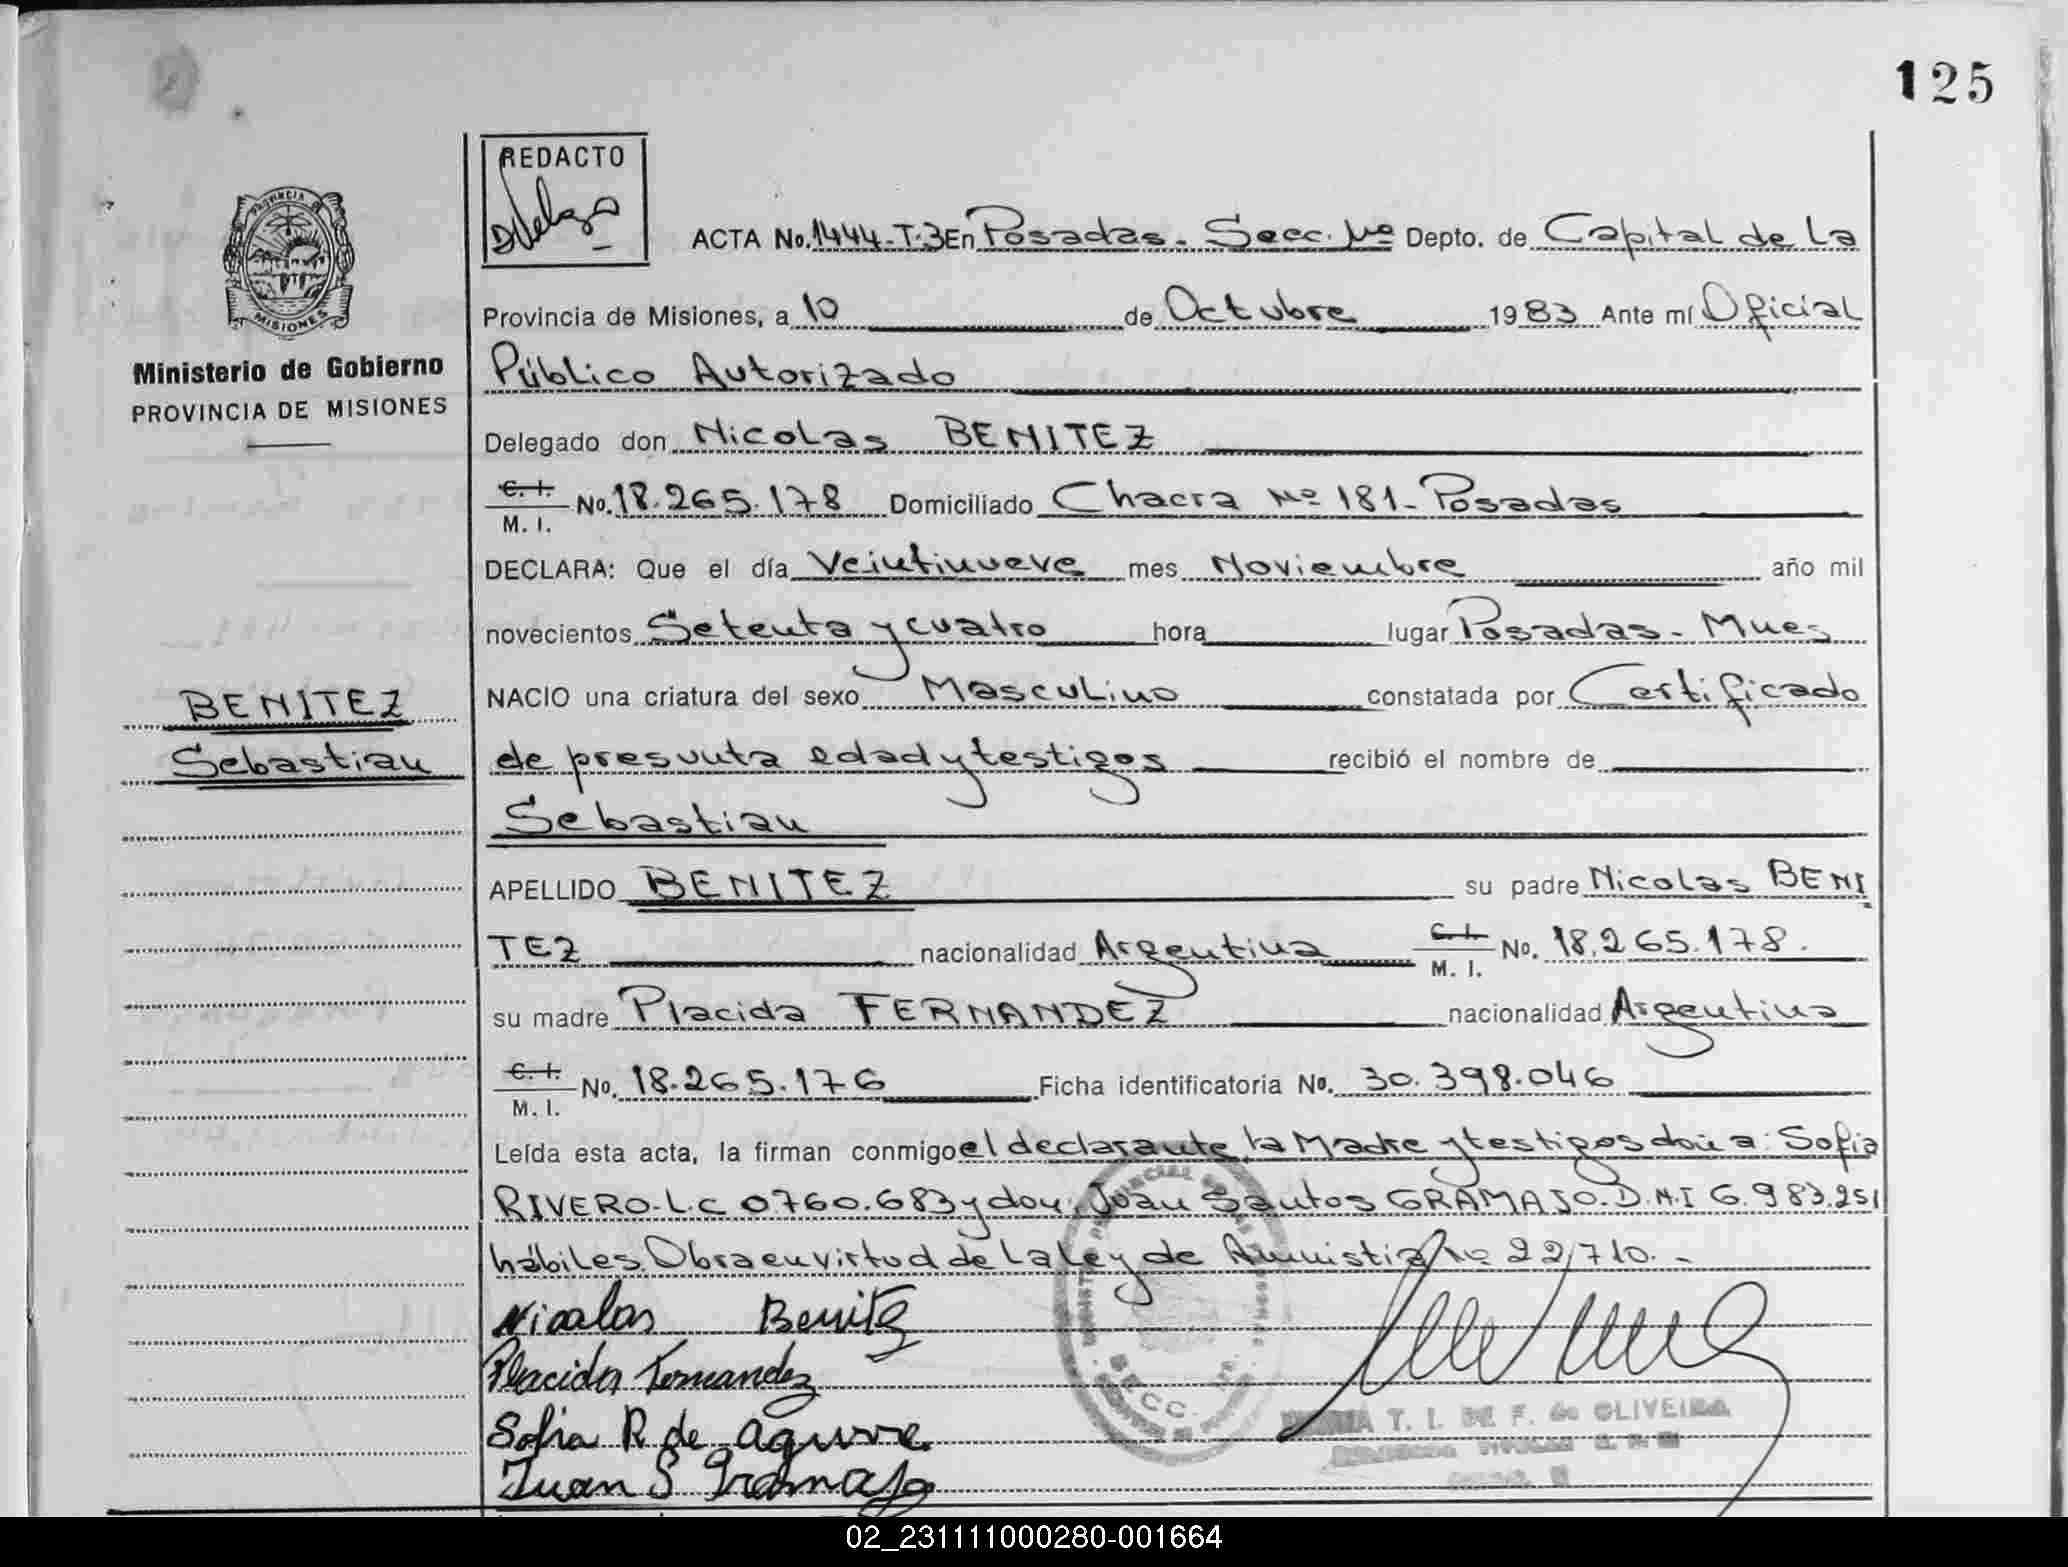 125
REDACTO
PROVINCIA DE
MISIONES
ACTA No. 1444-T.3 En Posadas - Secc. 1ra Depto. de Capital de La
Provincia de Misiones, a 10 de Octubre 1983 Ante mí Oficial
Ministerio de Gobierno
PROVINCIA DE MISIONES
Público Autorizado
Delegado don Nicolas BENITEZ
C. I.
M. I. No. 18.265.178 Domiciliado Chacra Nº 181 - Posadas
DECLARA: Que el día Veintinueve mes Noviembre año mil
novecientos Setenta y cuatro hora lugar Posadas - Mnes
NACIO una criatura del sexo Masculino constatada por Certificado
BENITEZ
Sebastian
de presunta edad y testigos recibió el nombre de
Sebastian
APELLIDO BENITEZ su padre Nicolas BENI
TEZ nacionalidad Argentina C. I.
M. I. No. 18.265.178.
su madre Placida FERNANDEZ nacionalidad Argentina
C. I.
M. I. No. 18.265.176 Ficha identificatoria No. 30.398.046
Leída esta acta, la firman conmigo el declarante, la Madre y testigos doña: Sofia
RIVERO - L.C 0760.683 y don: Juan Santos GRAMAJO. D.N.I 6.983.251
hábiles. Obra en virtud de la Ley de Amnistia No 22.710. -
Nicolas Benitez
Placida Fernandez
Sofia R de aguirre
Juan S Gramajo
SECC.
T. I. DE F. de OLIVEIRA
02_231111000280-001664